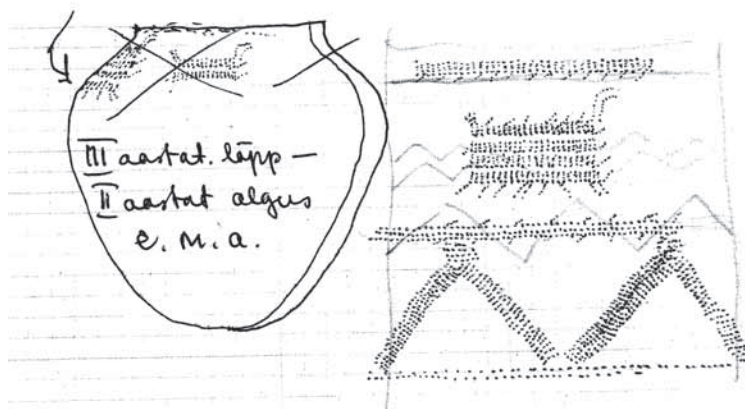 III aastat. lõpp –
II aastat algus
e. m. a.